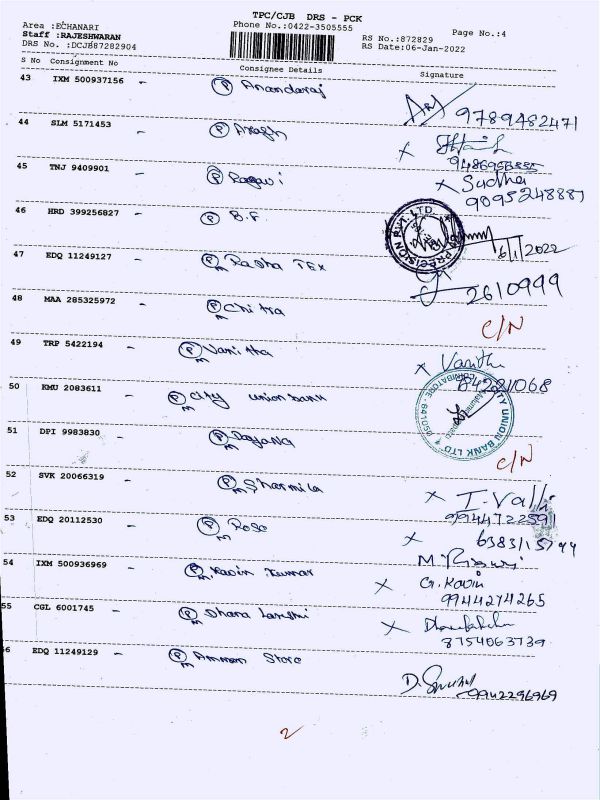 TPC/CJB DRS - PCK
Area :ECHANARI Phone No.:0422-3505555 Page No.:4
Staff :RAJESHWARAN RS No.:872829
DRS No. :DCJB87282904 RS Date:06-Jan-2022
S No Consignment No Consignee Details Signature
43 IXM 500937156 - (P) Anandaraj
9789482471
44 SLM 5171453 - (P)
x 9486956885
45 TNJ 9409901 - (P) Ragavi
x Sudha
9095248887
46 HRD 399256827 - (P) B.F.
PRECISION PVT. LTD
6/1/2022
47 EDQ 11249127 - (P) m Rasha Tex
2610999
48 MAA 285325972 - (P) m Chitra
C/N
49 TRP 5422194 - (P) m Vanitha
x Vanitha
84281068
50 KMU 2083611 - (P) m City union bank
CITY UNION BANK LTD
COIMBATORE - 641050
51 DPI 9983830 - (P) m Dayana
C/N
52 SVK 20066319 - (P) m Sharmila
x T. Valli
9944722591
53 EDQ 20112530 - (P) m Rose
x 6383115799
54 IXM 500936969 - (P) m Kavin Kumar
x G. Kavin
9944274265
55 CGL 6001745 - (P) m Dhana Lakshmi
x
8754063739
56 EDQ 11249129 - (P) m Amman Store
9942296969
2